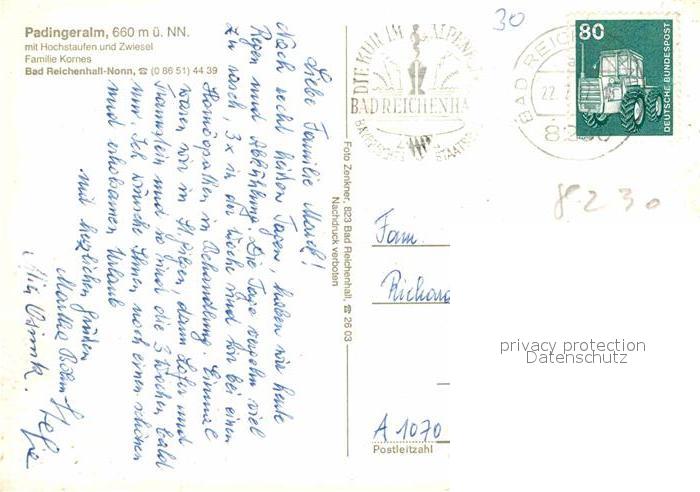 Padingeralm, 660 m ü. NN.
mit Hochstaufen und Zwiesel
Familie Kornes
Bad Reichenhall-Nonn, ☎ (0 86 51) 44 39
30
DIE KUR IM ALPENKL
BAD REICHENHA
BAYERISCHES STAATSB
BAD REIC
22.
8230
80
DEUTSCHE BUNDESPOST
8230
Liebe Familie March!
Nach recht heißen Tagen, haben wir heute
Regen und Abkühlung. Die Tage vergehen viel
zu rasch, 3x in der Woche sind wir bei einem
Homöopathen in Behandlung. Einmal
waren wir in St. Gilgen, dann Lofer und
Traunstein und so sind die 3 Wochen bald
um. Ich wünsche Ihnen noch einen schönen
und erholsamen Urlaub
mit herzlichen Grüßen
Martha
Foto Zenkner, 823 Bad Reichenhall, ☎ 26 03
Nachdruck verboten
Fam.
Richard
A 1070
Postleitzahl
privacy protection
Datenschutz